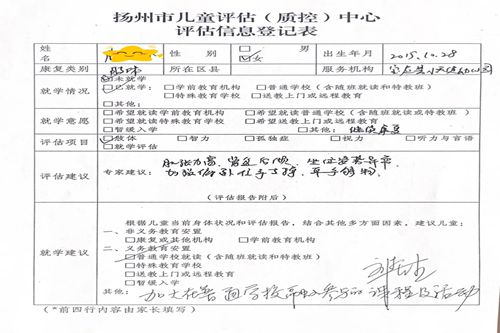 扬州市儿童评估（质控）中心
评估信息登记表
姓名 性别 □男 ☑女 出生年月 2015.10.28
康复类别 肢体 所在区县 服务机构
就学情况
☑未就学
□已就学：□学前教育机构 □普通学校（含随班就读和特教班）
□特殊教育学校 □送教上门或远程教育
□其他：
就学意愿
□希望就读学前教育机构 □希望就读普通学校（含随班就读或特教班）
□希望就读特殊教育学校 □希望送教上门或远程教育
□暂缓入学 □其他：继续康复
评估项目
☑肢体 □智力 □孤独症 □视力 □听力与言语
□就学评估
评估建议
专家建议：肌张力高，
（评估报告附后）
就学建议
根据儿童当前身体状况和评估报告，结合其他多方面因素，建议儿童：
一、非义务教育安置
□康复或其他机构 □学前教育机构
二、义务教育安置
☑普通学校就读（含随班就读和特教班）
□特殊教育学校
□送教上门或远程教育
□暂缓入学
其他：加大在普通学校中参与的课程及活动
（*前四行内容由家长填写）